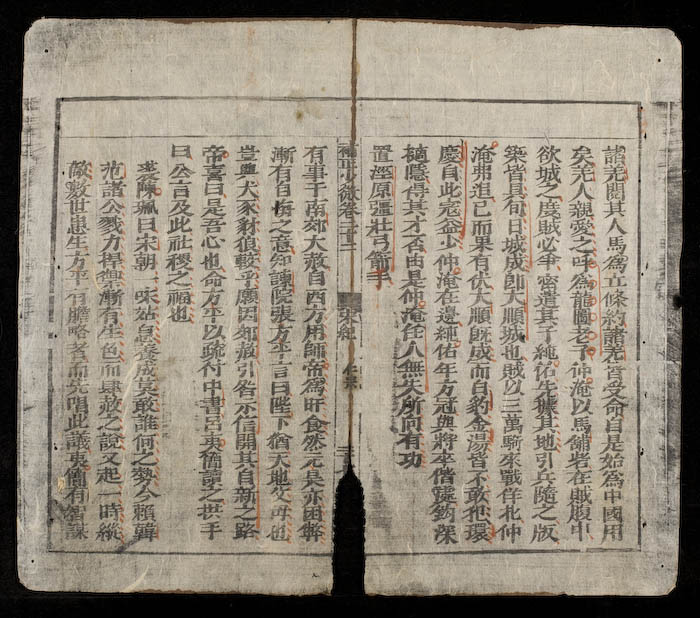 諸羌閱其人馬為立條約諸羌皆受命自是始為中國用
矣羌人親愛之呼為龍圖老子仲淹以馬鋪砦在賊腹中
欲城之度賊必爭密遣其子純佑先據其地引兵隨之版
築皆具旬日城成即大順城也賊以三萬騎來戰佯北仲
淹弗追已而果有伏大順既成而白豹金湯皆不敢犯環
慶自此寇益少仲淹在邊純佑年方冠與將卒偕處鉤深
擿隱得其才否由是仲淹任人無失所向有功
置涇原彊壯弓箭手
少微卷二十二 宋紀 仁宗
有事于南郊大赦自西方用師帝為旰食然元昊亦困弊
漸有自悔之意知諫院張方平言曰陛下猶天地父母也
豈與犬豕豺狼較乎願因郊赦引咎示信開其自新之路
帝喜曰是吾心也命方平以疏付中書呂夷簡讀之拱手
曰公言及此社稷之福也
陳珮曰宋朝一味姑息養成莫敢誰何之勢今賴韓
范諸公戮力捍禦漸有生色而肆赦之說又起一時縱
敵數世患生方平有膽略者而先唱此議夷簡有智謀